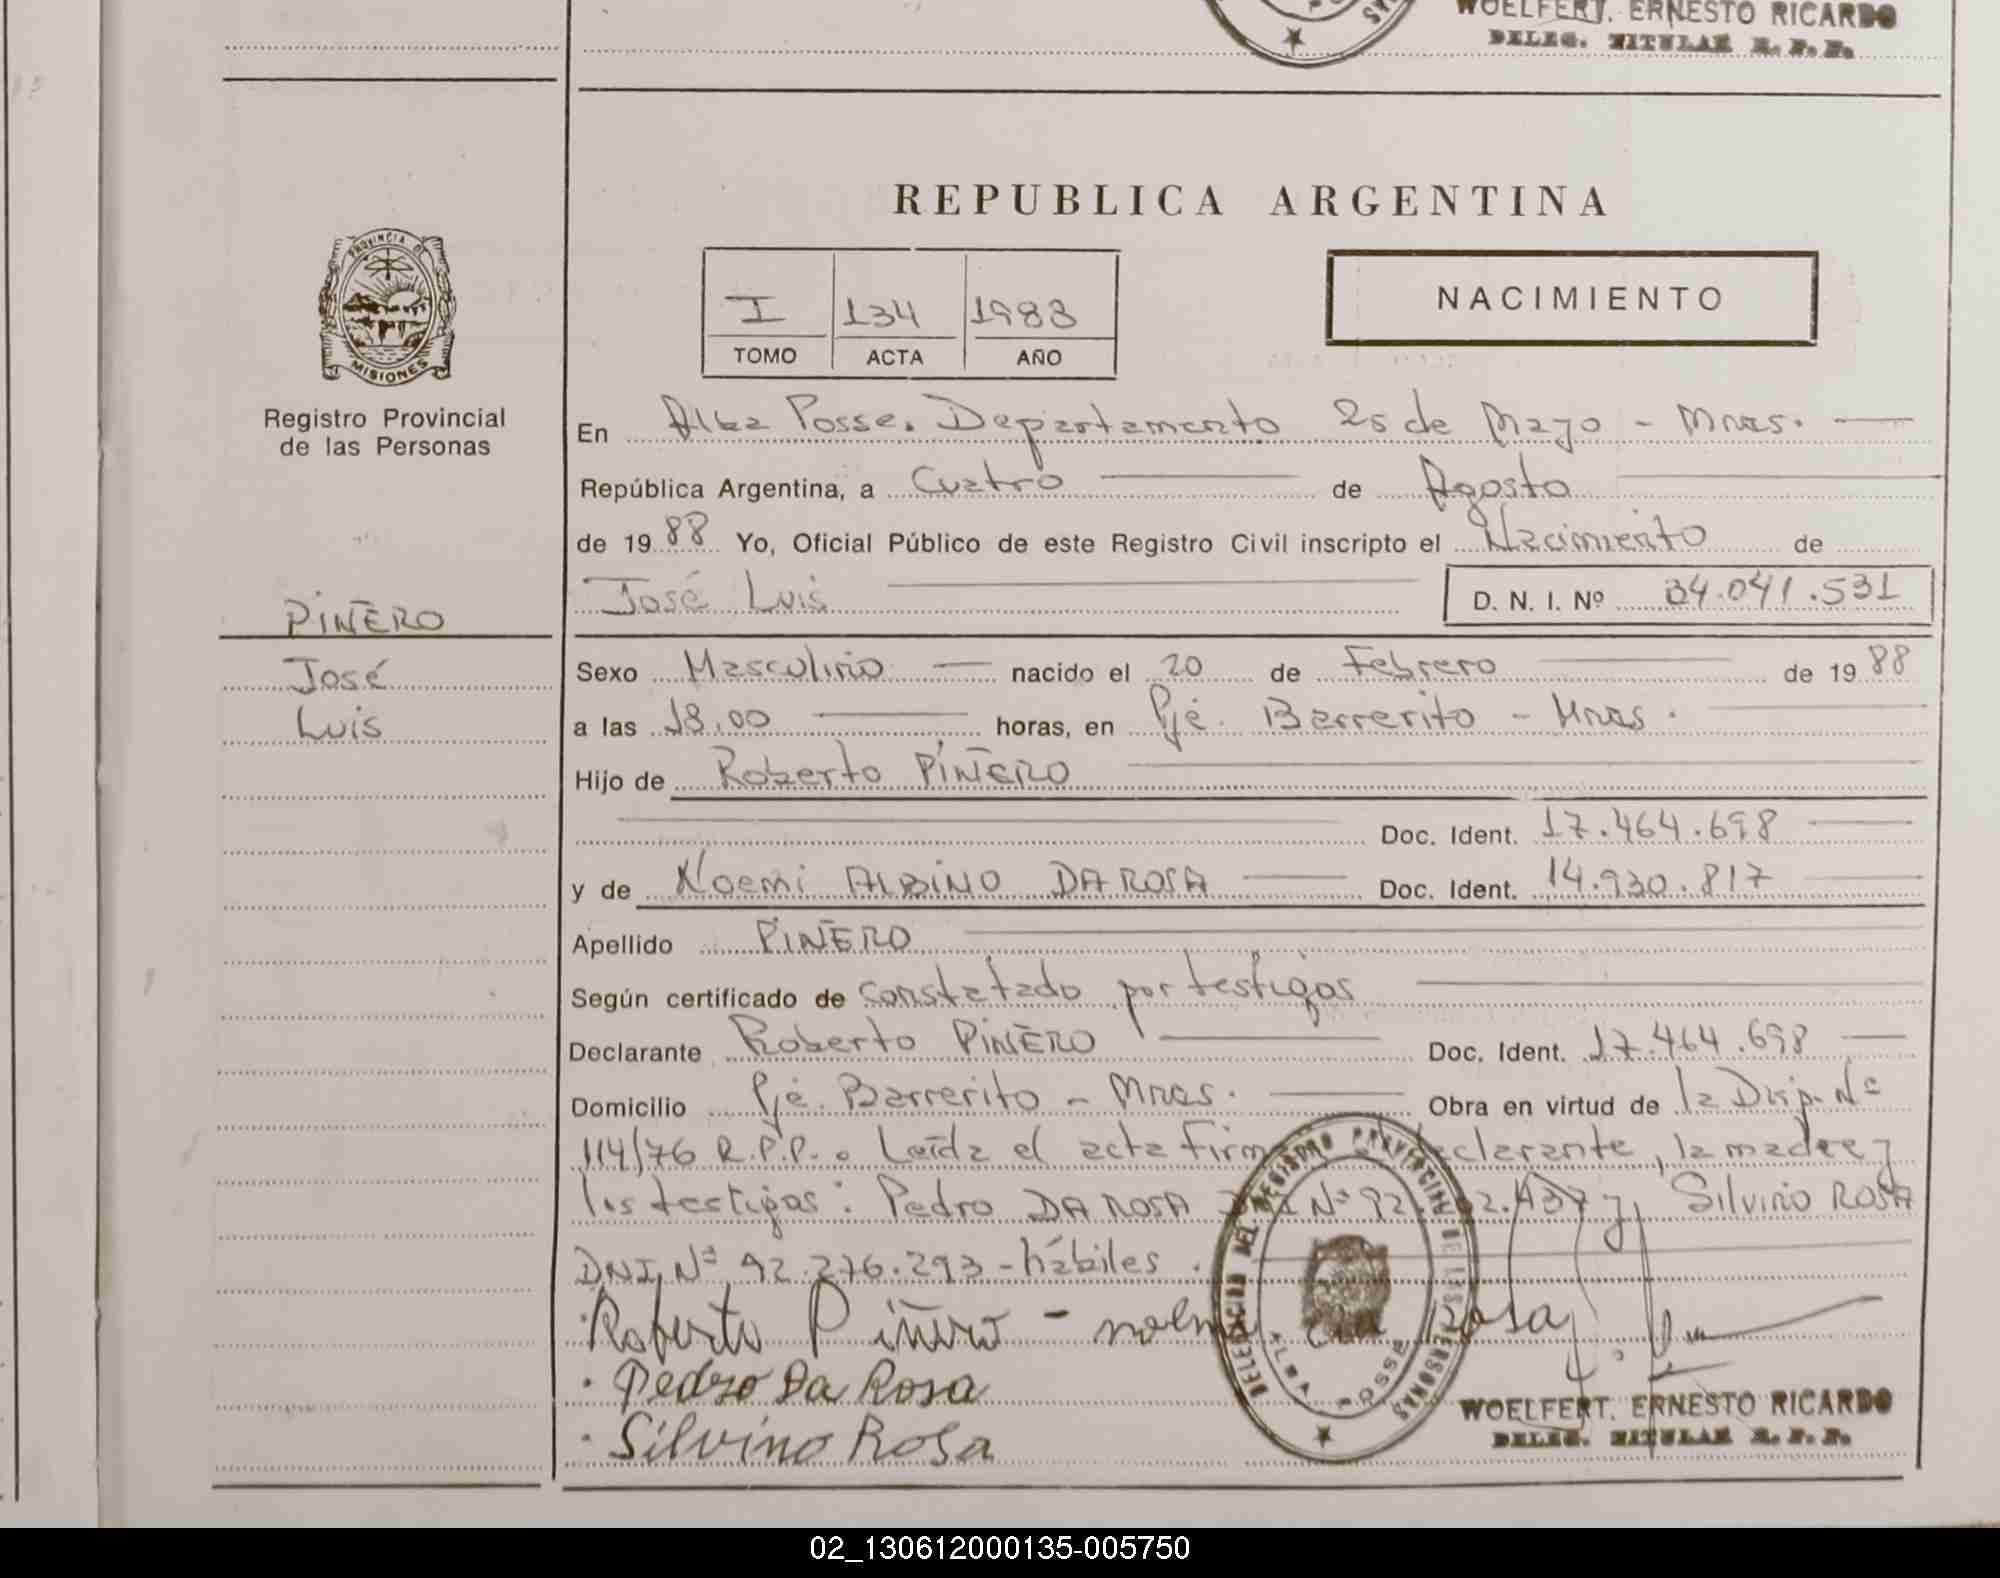 WOELFERT. ERNESTO RICARDO
DELEG. TITULAR R. P. P.
PROVINCIA DE
MISIONES
Registro Provincial
de las Personas
PIÑERO
José
Luis
REPUBLICA ARGENTINA
I 134 1988
TOMO ACTA AÑO
NACIMIENTO
En Alba Posse. Departamento 25 de Mayo - Mnes.
República Argentina, a Cuatro de Agosto
de 1988 Yo, Oficial Público de este Registro Civil inscripto el Nacimiento de
José Luis D. N. I. Nº 34.041.531
Sexo Masculino nacido el 20 de Febrero de 1988
a las 18.00 horas, en Pje. Barrerito - Mnes.
Hijo de Roberto PIÑERO
Doc. Ident. 17.464.698
y de Noemi ALBINO DA ROSA Doc. Ident. 14.930.817
Apellido PIÑERO
Según certificado de constatado por testigos
Declarante Roberto PIÑERO Doc. Ident. 17.464.698
Domicilio Pje. Barrerito - Mnes. Obra en virtud de la Disp. Nº
114/76 R.P.P. Leída el acta la madre y
los testigos: Pedro DA ROSA Silvino ROSA
DNI Nº 92.276.293 - hábiles.
Roberto Piñero - Da Rosa
Pedro Da Rosa
Silvino Rosa
DELEGACION DEL REGISTRO PROVINCIAL DE LAS PERSONAS
ALBA POSSE
WOELFERT. ERNESTO RICARDO
DELEG. TITULAR R. P. P.
02_130612000135-005750